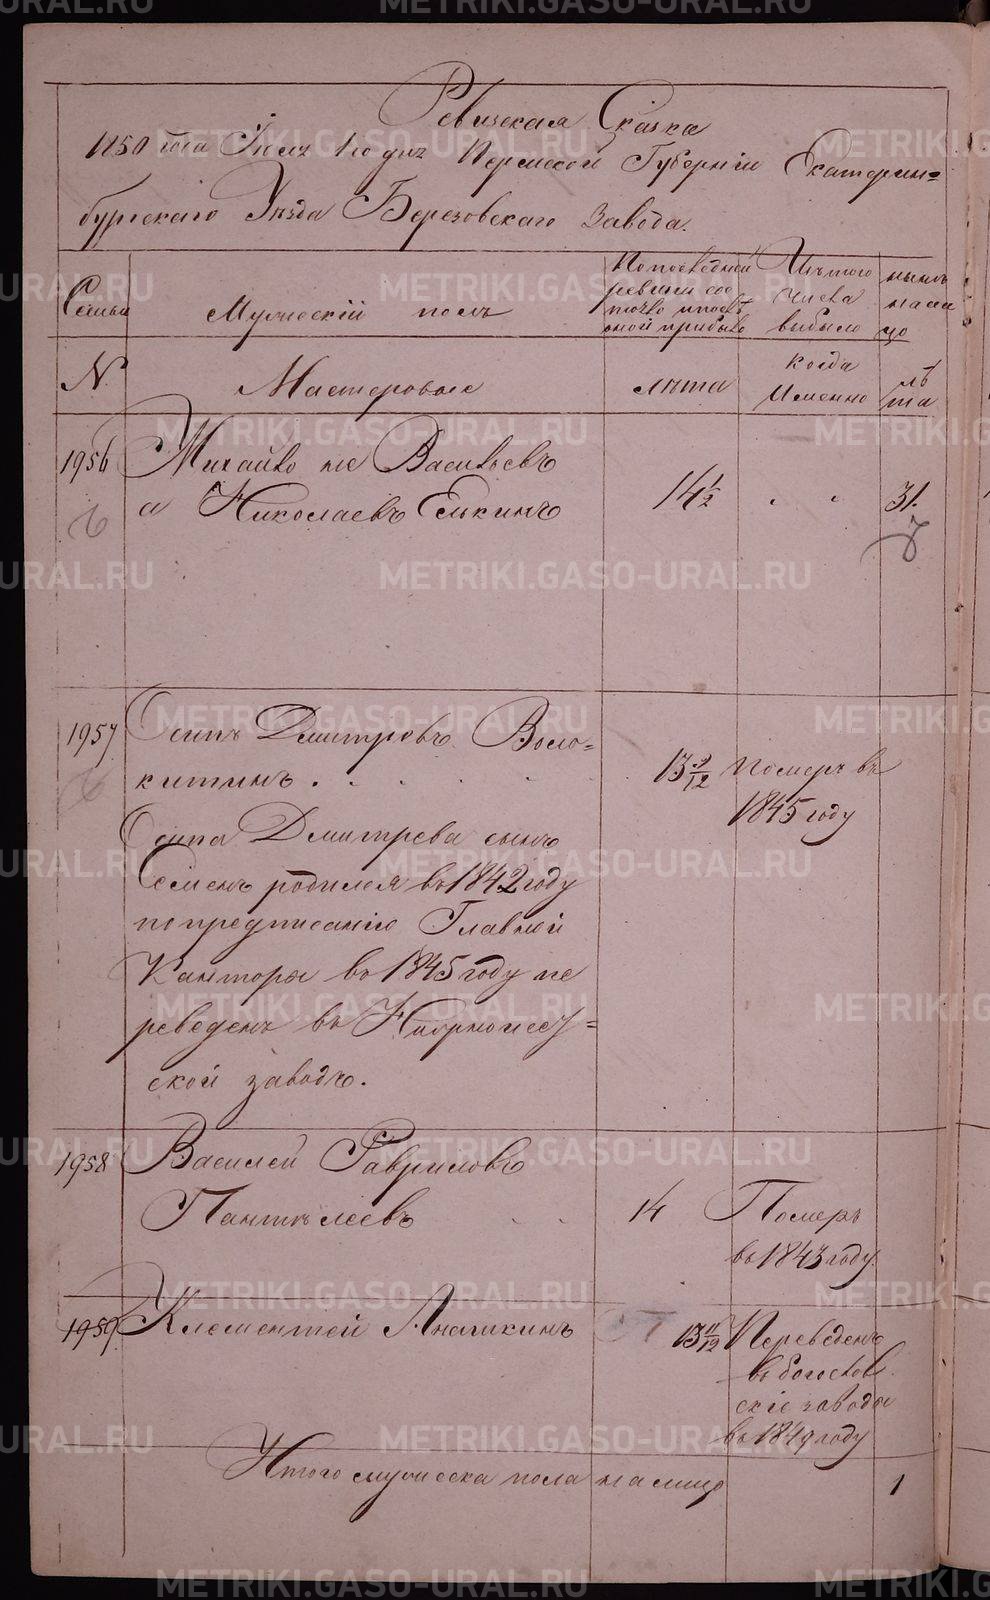 Ревизская Сказка
1850 года Іюля 1го дня Пермской Губерніи Екатерин=
бургскаго Уѣзда Березовскаго завода.
Семьи
Мужескій полъ
По последней
ревизіи со
стояло и после
оной прибыло
Изъ того
числа
выбыло
нынѣ
на ли
цо
№
Мастеровые
лѣта
когда
Именно
лѣ
та
1956
Михайло не Васильевъ
а Николаевъ Елькинъ
14 1/2
31.
1957
Осипъ Дмитровъ Воло=
китинъ
13 9/12
Померъ въ
1845 году
Осипа Дмитрева сынъ
Семенъ родился въ 1842 году
по предписанію Главной
Канторы въ 1845 году пе
реведенъ въ
ской заводъ.
1958
Василей Гавриловъ
Пантѣлеевъ
14
Померъ
въ 1843 году.
1959
Клементей Анашкинъ
13 11/12
Переведенъ
въ богослов
скіе заводы
въ 1849 году
Итого мужеска пола на лицо
1
METRIKI.GASO-URAL.RU